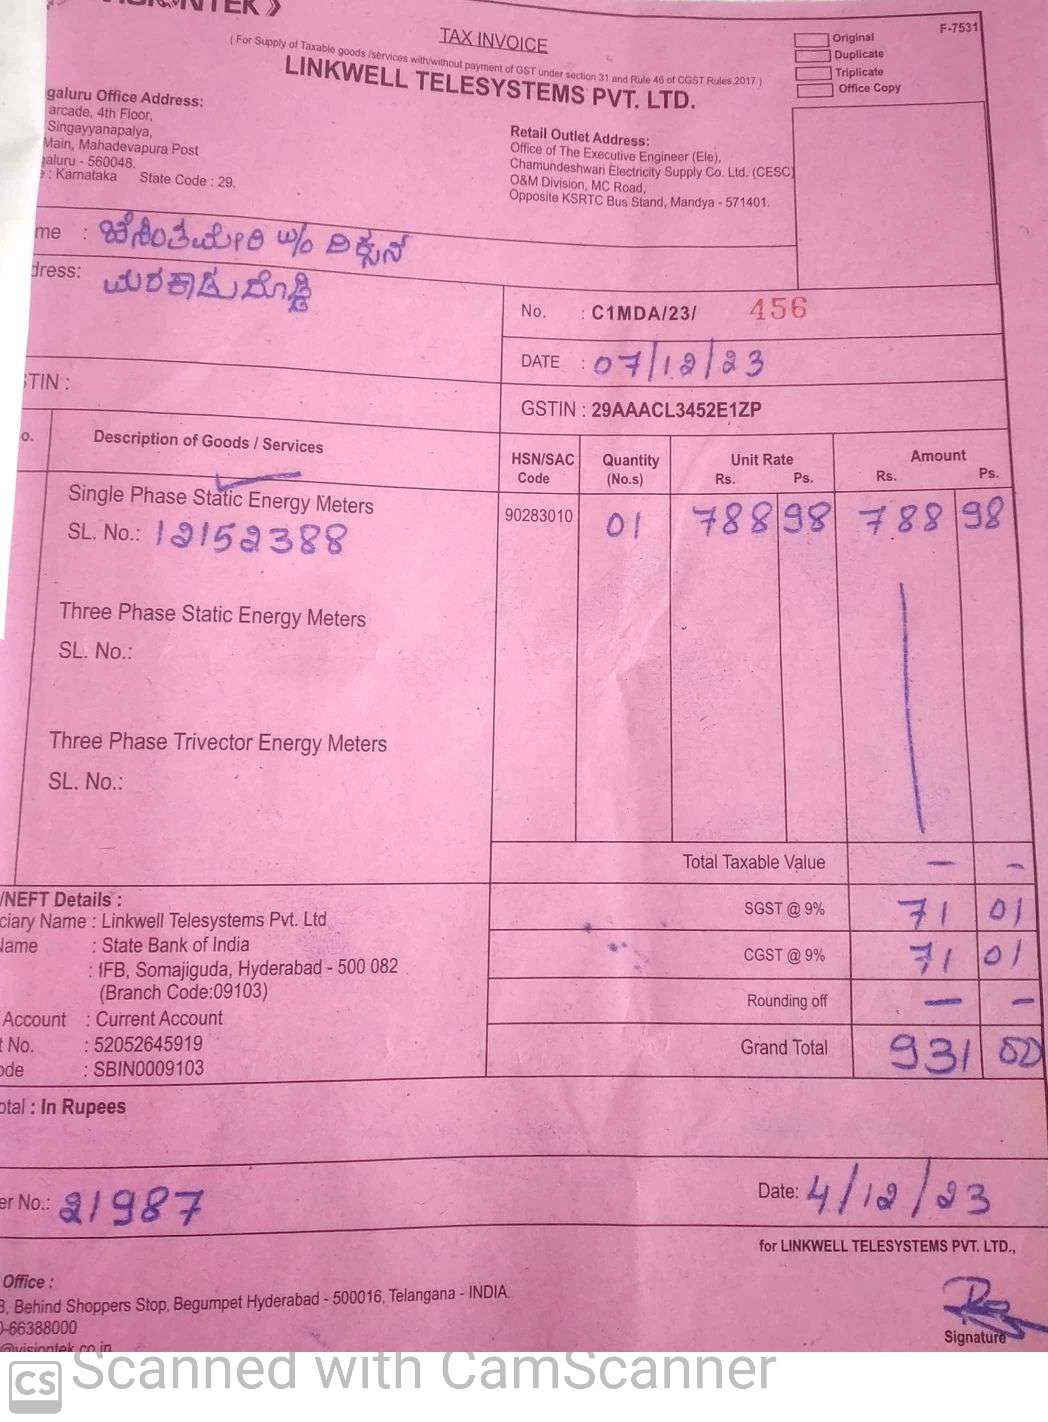 TAX INVOICE
F-7531
( For Supply of Taxable goods /services with/without payment of GST under section 31 and Rule 46 of CGST Rules,2017 )
LINKWELL TELESYSTEMS PVT. LTD.
Original
Duplicate
Triplicate
Office Copy
galuru Office Address:
arcade, 4th Floor,
Singayyanapalya,
Main, Mahadevapura Post
aluru - 560048.
: Karnataka State Code : 29.
Retail Outlet Address:
Office of The Executive Engineer (Ele),
Chamundeshwari Electricity Supply Co. Ltd. (CESC)
O&M Division, MC Road,
Opposite KSRTC Bus Stand, Mandya - 571401.
me : W/o
dress: ಮರಕಾಡುದೊಡ್ಡಿ
No. : C1MDA/23/ 456
DATE : 07/12/23
STIN :
GSTIN : 29AAACL3452E1ZP
o. Description of Goods / Services HSN/SAC Code Quantity (No.s) Unit Rate Rs. Ps. Amount Rs. Ps.
Single Phase Static Energy Meters 90283010 01 788 98 788 98
SL. No.: 12152388
Three Phase Static Energy Meters
SL. No.:
Three Phase Trivector Energy Meters
SL. No.:
Total Taxable Value — —
/NEFT Details :
ciary Name : Linkwell Telesystems Pvt. Ltd
SGST @ 9% 71 01
Name : State Bank of India
CGST @ 9% 71 01
: IFB, Somajiguda, Hyderabad - 500 082
(Branch Code:09103)
Rounding off — —
Account : Current Account
t No. : 52052645919
Grand Total 931 00
ode : SBIN0009103
otal : In Rupees
er No.: 21987
Date: 4/12/23
for LINKWELL TELESYSTEMS PVT. LTD.,
Office :
B, Behind Shoppers Stop, Begumpet Hyderabad - 500016, Telangana - INDIA.
0-66388000
@visiontek.co.in
Signature
CS Scanned with CamScanner